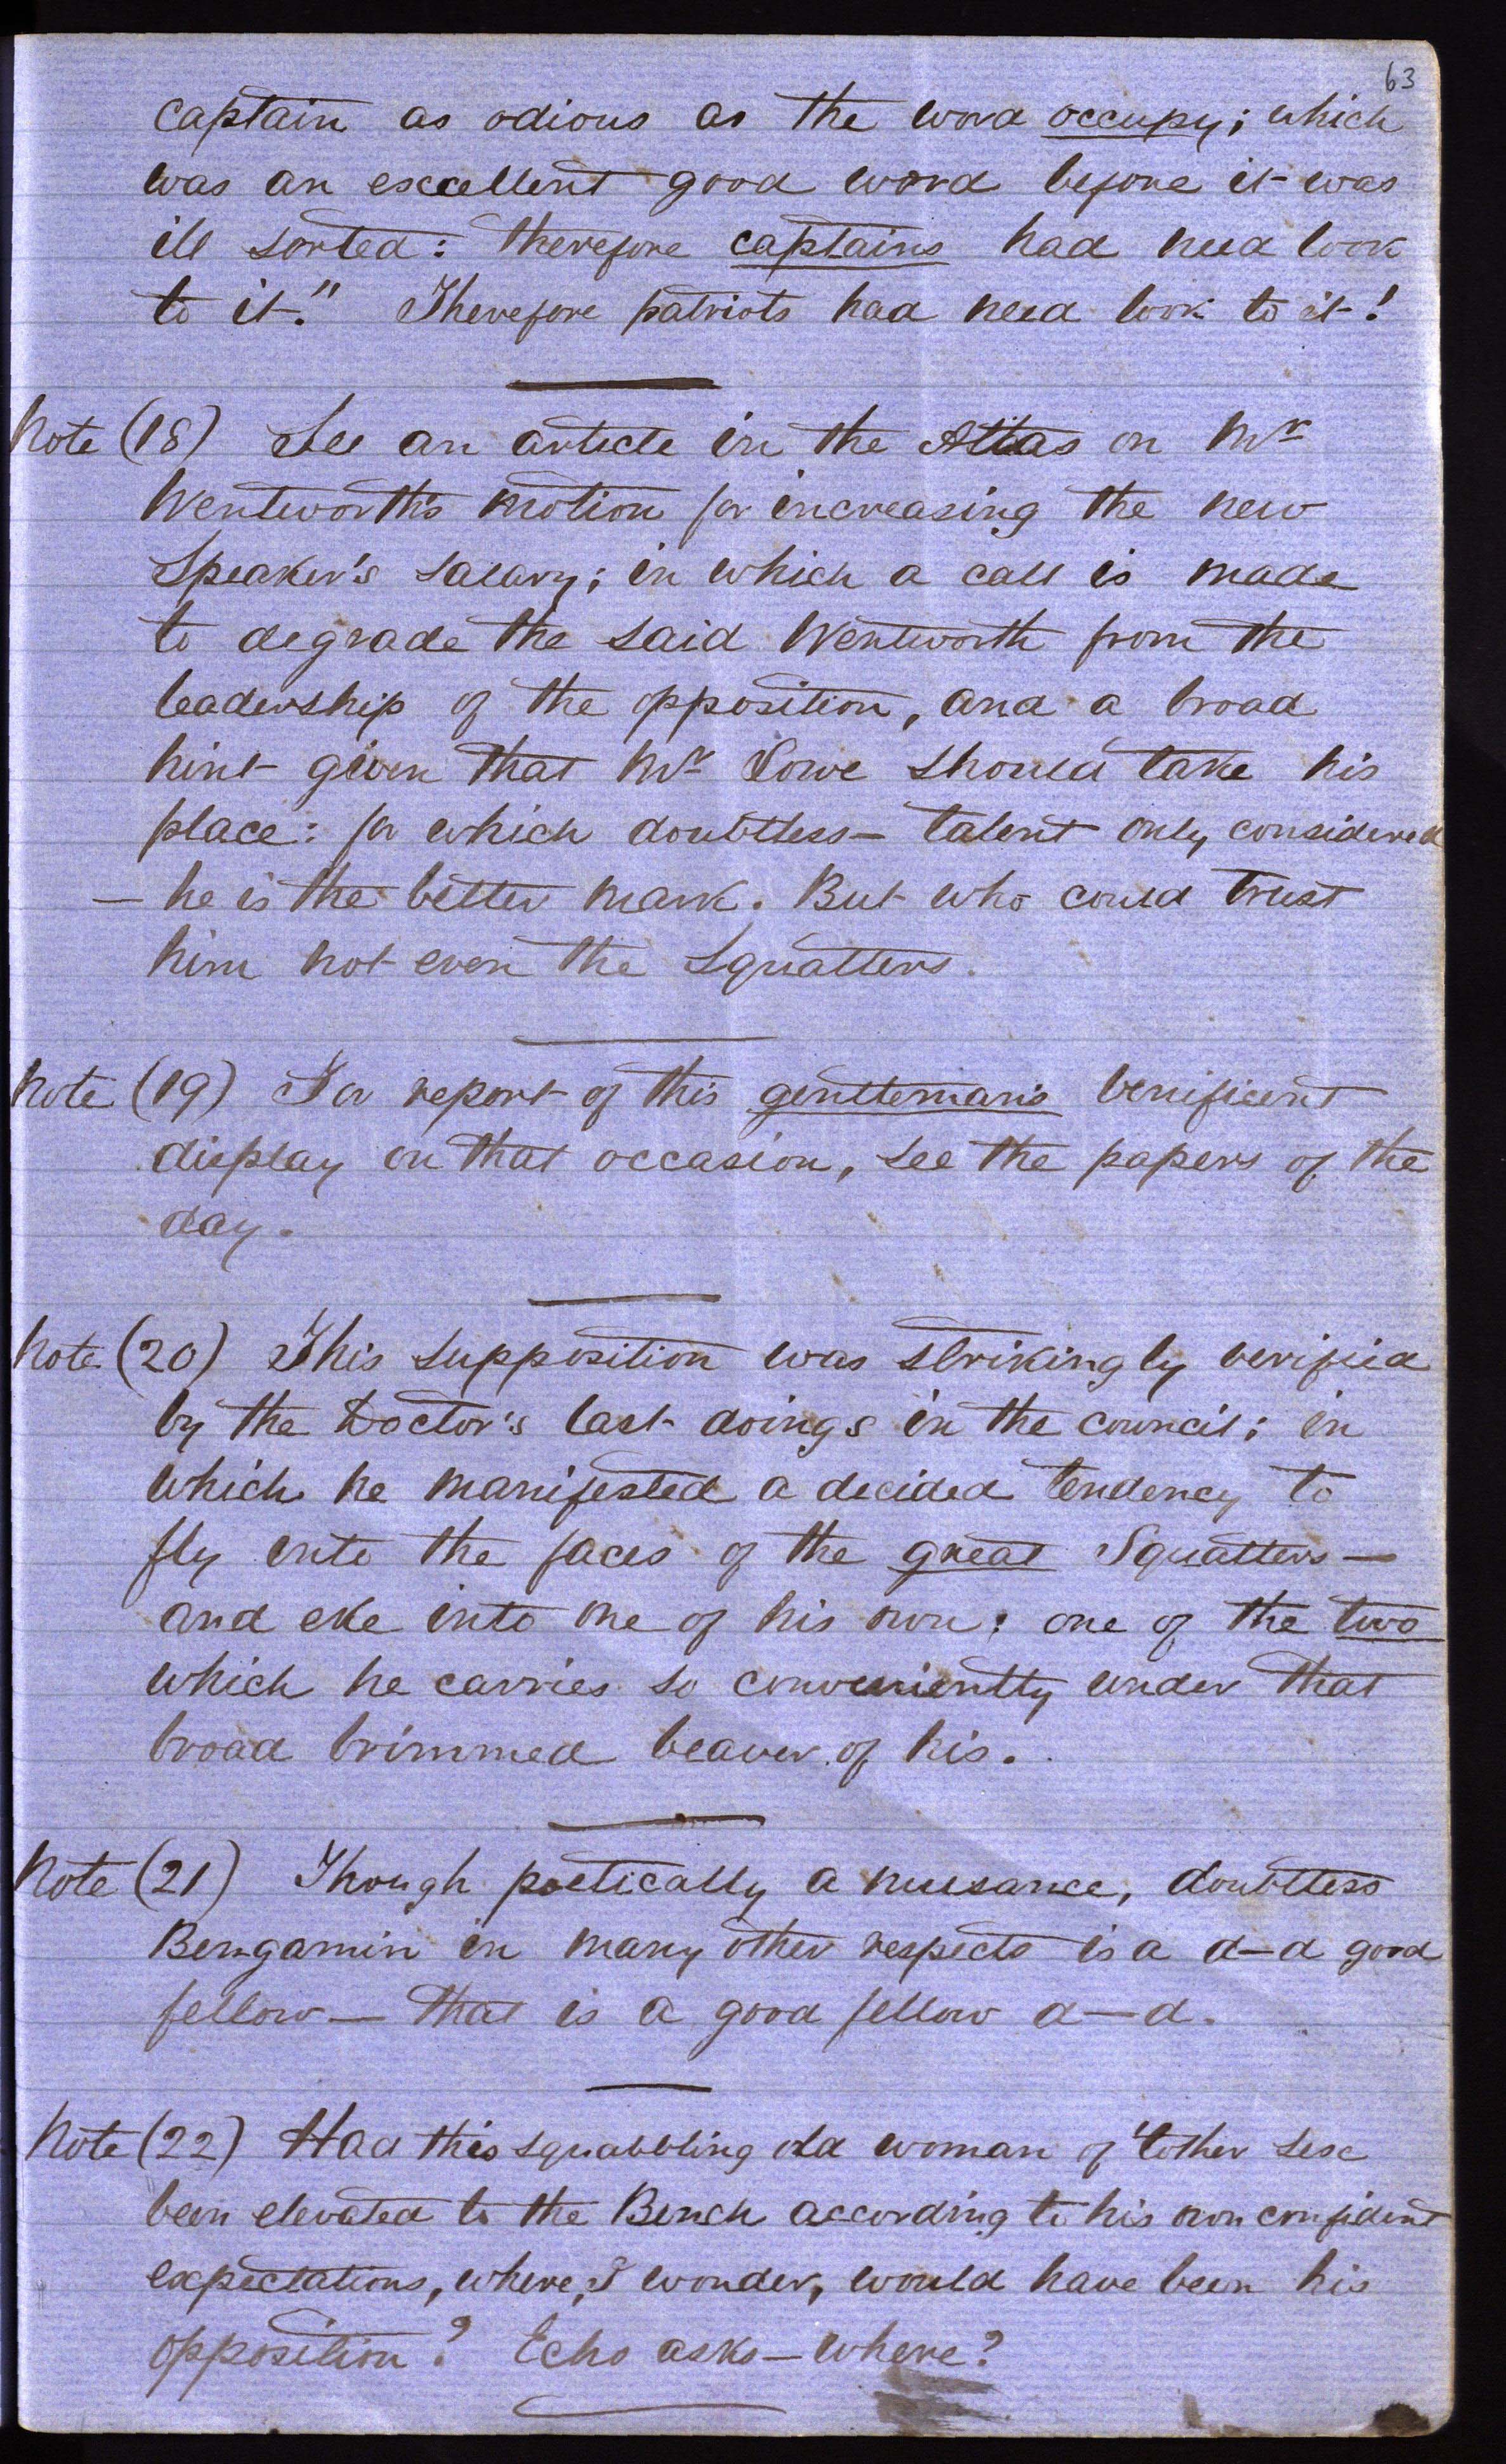 63
captain as odious as the word occupy; which
was an excellent good word before it was
ill sorted: therefore captains had need look
to it." Therefore patriots had need look to it!
Note (18) See an article in the Atlas on Mr
Wentworth's motion for increasing the new
Speaker's salary; in which a call is made
to degrade the said Wentworth from the
leadership of the opposition, and a broad
hint given that Mr Lowe should take his
place: for which doubtless — talent only considered
— he is the better mark. But who could trust
him not even the Squatters.
Note (19) For report of this gentleman's benificent
display on that occasion, see the papers of the
day.
Note (20) This supposition was strikingly verified
by the Doctor's last doings in the council; in
which he manifested a decided tendency to
fly into the faces of the great Squatters —
and eke into one of his own: one of the two
which he carries so conveniently under that
broad brimmed beaver of his.
Note (21) Though poetically a nuisance, doubtless
Bengamin in many other respects is a d—d good
fellow — that is a good fellow d—d.
Note (22) Had this squabbling old woman of t'other sex
been elevated to the Bench according to his own confident
expectations, where, I wonder, would have been his
opposition? Echo asks — where?